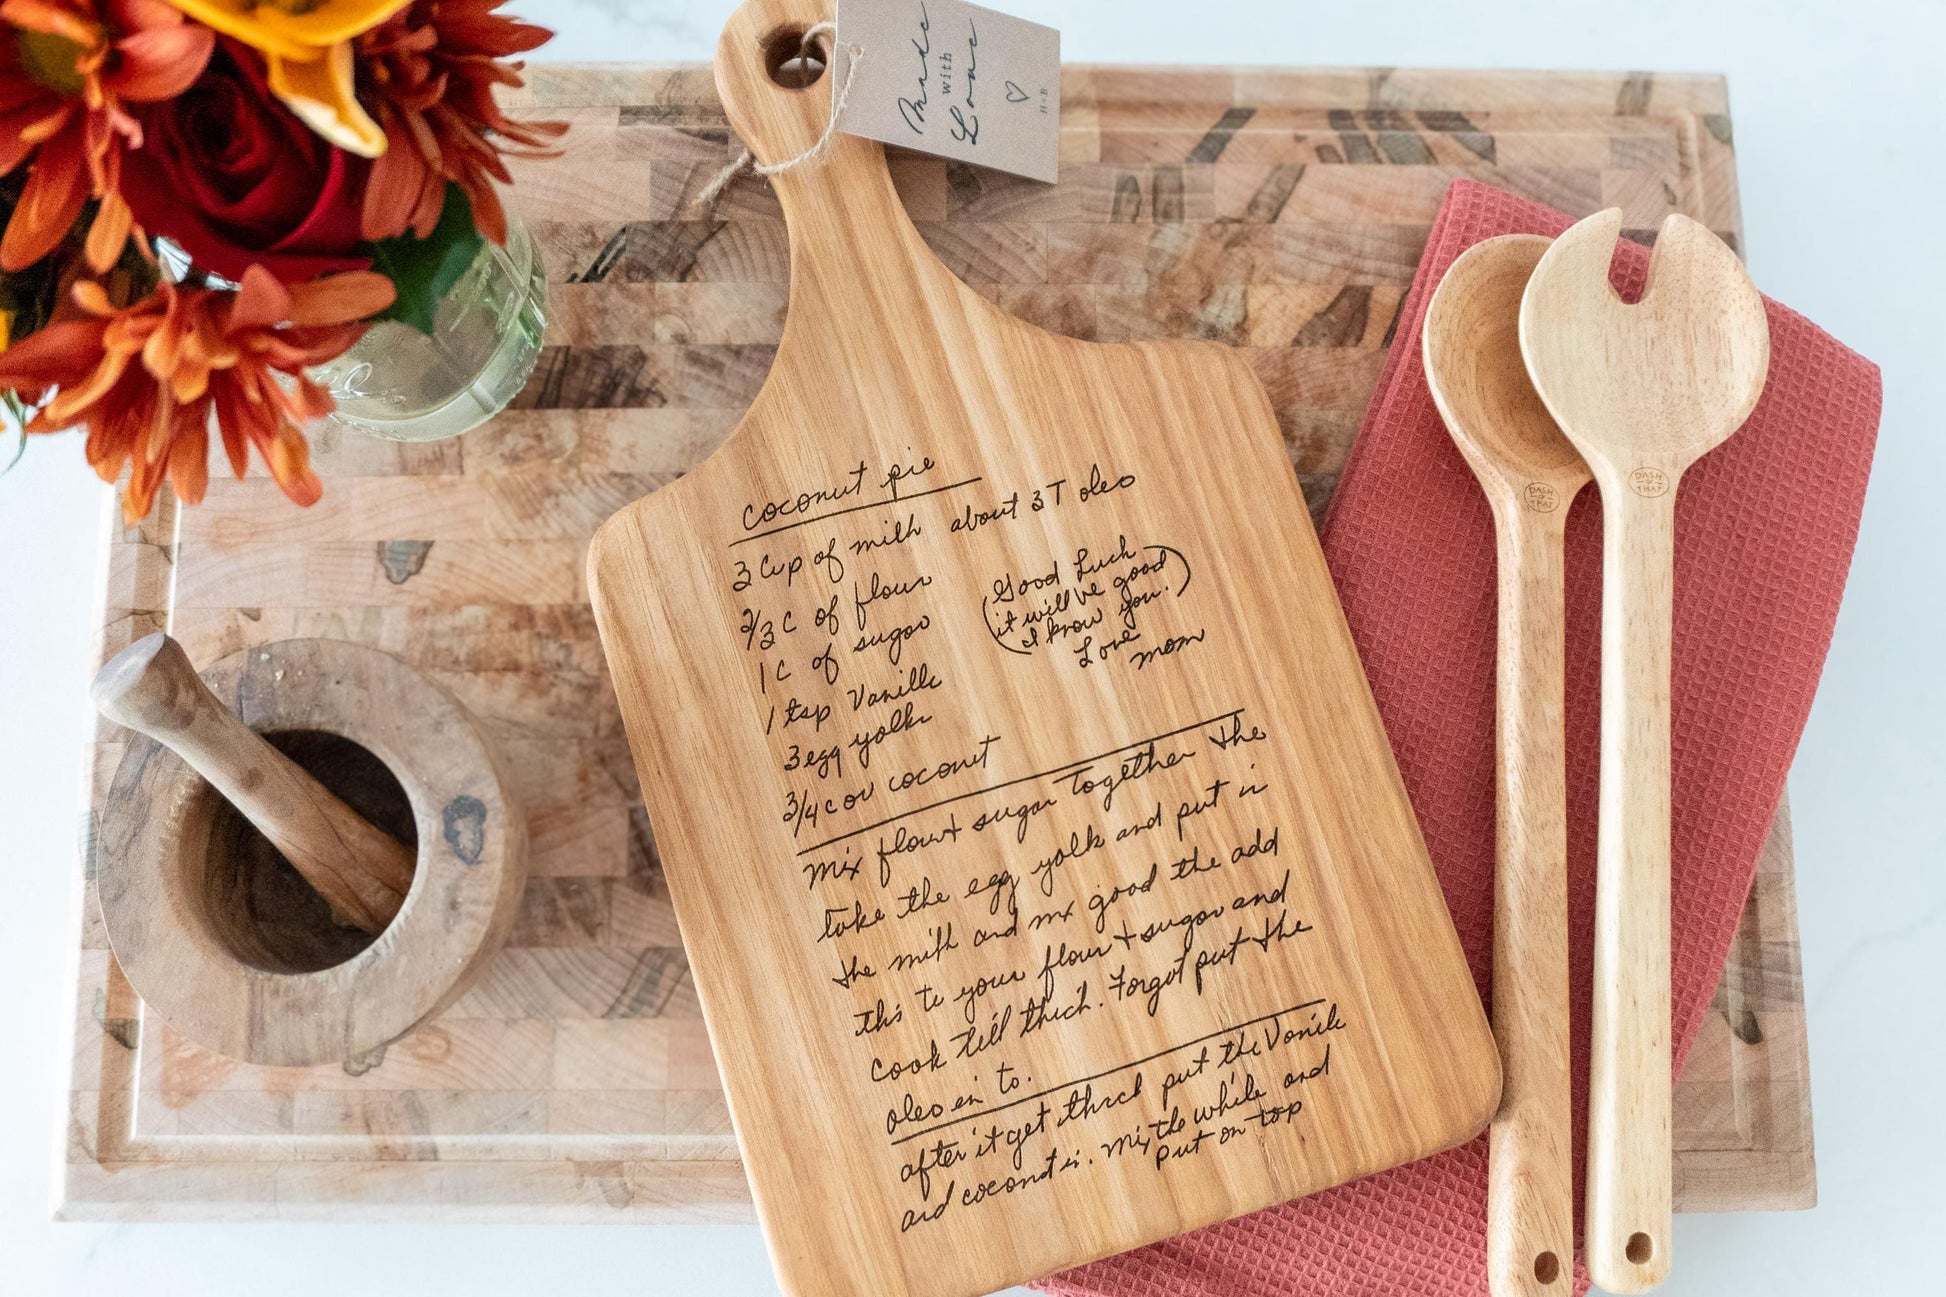 Made
with
Love
H+B
coconut pie
3 Cup of milk about 3 T oleo
2/3 C of flour
1 C of sugar
1 tsp Vanilla
3 egg yolks
3/4 c ov coconut
(Good Luck
it will be good
I know you.)
Love
mom
Mix flour + sugar together the
take the egg yolk and put in
the milk and mx good the add
this to your flour + sugar and
cook till thick. Forgot put the
oleo in to.
after it get thick put the Vanile
and coconut in. Mix the while and
put on top
DASH
of
THAT
DASH
of
THAT